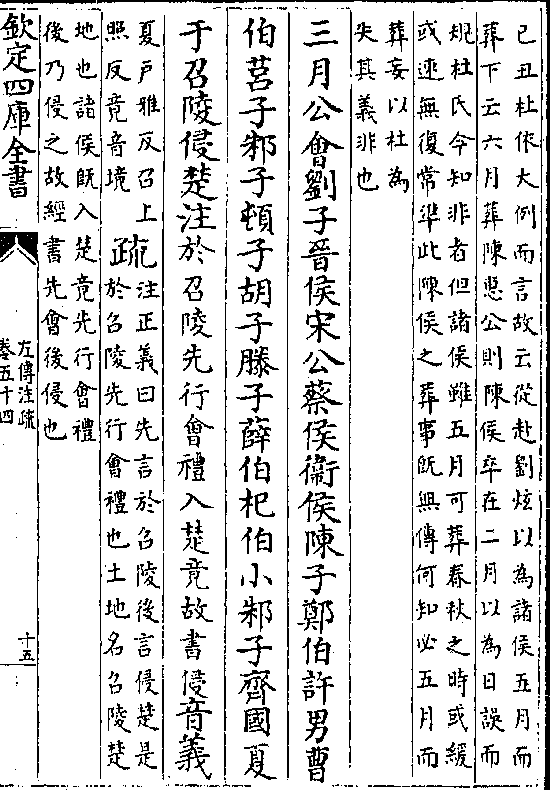 己丑杜依大例而言故云從赴劉炫以為諸侯五月而
葬下云六月葬陳惠公則陳侯卒在二月以為日誤而
規杜氏今知非者但諸侯雖五月可葬春秋之時或緩
或速無復常準此陳侯之葬事既無傳何知必五月而
葬妄以杜為
失其義非也
三月公會劉子晉侯宋公蔡侯衞侯陳子鄭伯許男曹
伯莒子邾子頓子胡子滕子薛伯杞伯小邾子齊國夏
于召陵侵楚注於召陵先行會禮入楚竟故書侵音義
夏戸雅反召上
照反竟音境
疏
注正義曰先言於召陵後言侵楚是
於召陵先行會禮也土地名召陵楚
地也諸侯既入楚竟先行會禮
後乃侵之故經書先會後侵也
欽定四庫全書
左傳注疏
卷五十四
十五